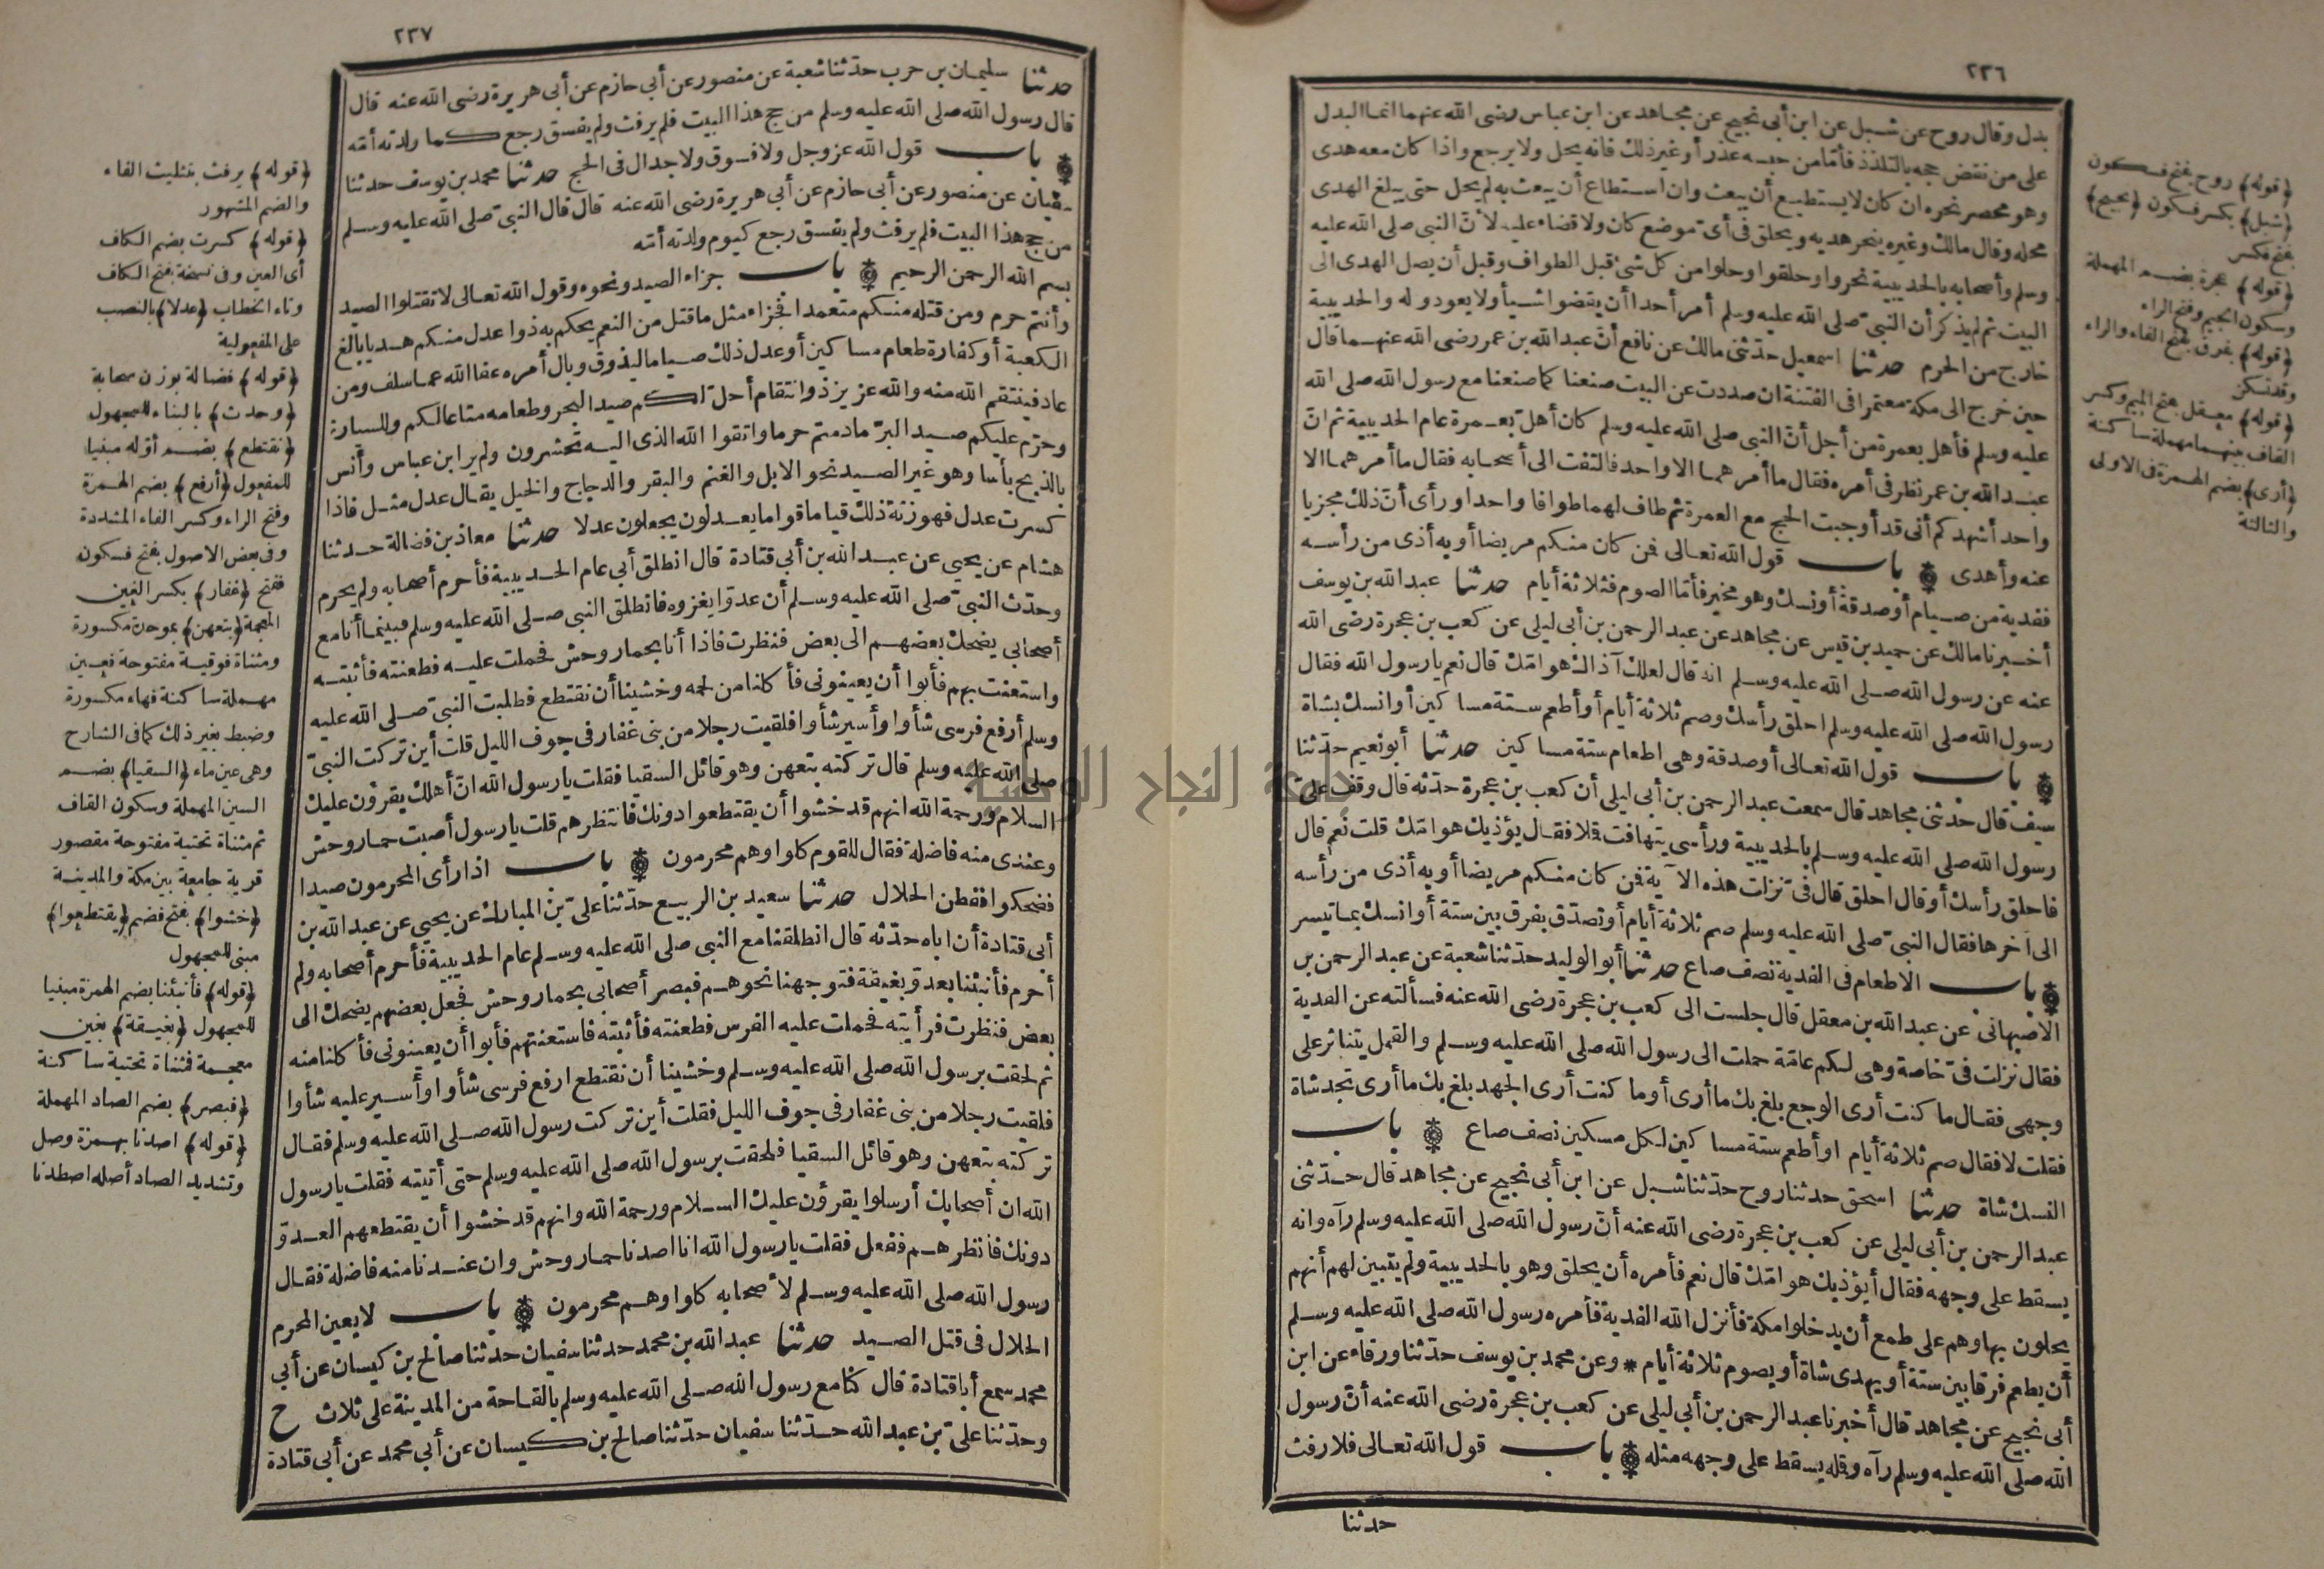 ٢٣٦
بدل وقال روح عن شبل عن ابن أبي نجيح عن مجاهد عن ابن عباس رضى الله عنهما انما البدل
على من نقض حجه بالتلذذ فأما من حبسه عذر أو غير ذلك فانه يحل ولا يرجع واذا كان معه هدى
وهو محصر نحره ان كان لا يستطيع أن يبعث وان استطاع أن يبعث به لم يحل حتى يبلغ الهدى
محله وقال مالك وغيره ينحر هديه ويحلق فى أى موضع كان ولا قضاء عليه لأن النبى صلى الله عليه
وسلم وأصحابه بالحديبية نحروا وحلقوا وحلوا من كل شئ قبل الطواف وقبل أن يصل الهدى الى
البيت ثم لم يذكر أن النبى صلى الله عليه وسلم أمر أحدا أن يقضوا شيأ ولا يعودوا له والحديبية
خارج من الحرم حدثنا اسمعيل حدثنى مالك عن نافع أن عبد الله بن عمر رضى الله عنهما قال
حين خرج الى مكة معتمرا فى الفتنة ان صددت عن البيت صنعنا كما صنعنا مع رسول الله صلى الله
عليه وسلم فأهل بعمرة من أجل أن النبى صلى الله عليه وسلم كان أهل بعمرة عام الحديبية ثم ان
عبد الله بن عمر نظر فى أمره فقال ما أمرهما الا واحد فالتفت الى أصحابه فقال ما أمرهما الا
واحد أشهدكم أنى قد أوجبت الحج مع العمرة ثم طاف لهما طوافا واحدا ورأى أن ذلك مجزيا
عنه وأهدى باب قول الله تعالى فمن كان منكم مريضا أو به أذى من رأسه
ففدية من صيام أو صدقة أو نسك وهو مخير فأما الصوم فثلاثة أيام حدثنا عبد الله بن يوسف
أخبرنا مالك عن حميد بن قيس عن مجاهد عن عبد الرحمن بن أبى ليلى عن كعب بن عجرة رضى الله
عنه عن رسول الله صلى الله عليه وسلم انه قال لعلك آذاك هوامك قال نعم يا رسول الله فقال
رسول الله صلى الله عليه وسلم احلق رأسك وصم ثلاثة أيام أو أطعم ستة مساكين أو انسك بشاة
باب قول الله تعالى أو صدقة وهى اطعام ستة مساكين حدثنا أبو نعيم حدثنا
سيف قال حدثنى مجاهد قال سمعت عبد الرحمن بن أبى ليلى أن كعب بن عجرة حدثه قال وقف على
رسول الله صلى الله عليه وسلم بالحديبية ورأسى يتهافت قملا فقال يؤذيك هوامك قلت نعم قال
فاحلق رأسك أو قال احلق قال فى نزلت هذه الآية فمن كان منكم مريضا أو به أذى من رأسه
الى آخرها فقال النبى صلى الله عليه وسلم صم ثلاثة أيام أو تصدق بفرق بين ستة أو انسك بما تيسر
باب الاطعام فى الفدية نصف صاع حدثنا أبو الوليد حدثنا شعبة عن عبد الرحمن بن
الاصبهانى عن عبد الله بن معقل قال جلست الى كعب بن عجرة رضى الله عنه فسألته عن الفدية
فقال نزلت فى خاصة وهى لكم عامة حملت الى رسول الله صلى الله عليه وسلم والقمل يتناثر على
وجهى فقال ما كنت أرى الوجع بلغ بك ما أرى أو ما كنت أرى الجهد بلغ بك ما أرى تجد شاة
فقلت لا فقال صم ثلاثة أيام أو أطعم ستة مساكين لكل مسكين نصف صاع باب
النسك شاة حدثنا اسحق حدثنا روح حدثنا شبل عن ابن أبى نجيح عن مجاهد قال حدثنى
عبد الرحمن بن أبى ليلى عن كعب بن عجرة رضى الله عنه أن رسول الله صلى الله عليه وسلم رآه وانه
يسقط على وجهه فقال أيؤذيك هوامك قال نعم فأمره أن يحلق وهو بالحديبية ولم يتبين لهم أنهم
يحلون بها وهم على طمع أن يدخلوا مكة فأنزل الله الفدية فأمره رسول الله صلى الله عليه وسلم
أن يطعم فرقا بين ستة أو يهدى شاة أو يصوم ثلاثة أيام * وعن محمد بن يوسف حدثنا ورقاء عن ابن
أبى نجيح عن مجاهد قال أخبرنا عبد الرحمن بن أبى ليلى عن كعب بن عجرة رضى الله عنه أن رسول
الله صلى الله عليه وسلم رآه وقمله يسقط على وجهه مثله باب قول الله تعالى فلا رفث
حدثنا
(قوله) روح بفتح فسكون
(شبل) بكسر فسكون (نجيح)
بفتح فكسر
(قوله) عجرة بضم المهملة
وسكون الجيم وفتح الراء
(قوله) بفرق بفتح الفاء والراء
وقد تسكن
(قوله) معقل بفتح الميم وكسر
القاف بينهما مهملة ساكنة
(أرى) بضم الهمزة فى الاولى
والثالثة
٢٣٧
حدثنا سليمان بن حرب حدثنا شعبة عن منصور عن أبى حازم عن أبى هريرة رضى الله عنه قال
قال رسول الله صلى الله عليه وسلم من حج هذا البيت فلم يرفث ولم يفسق رجع كما ولدته أمه
باب قول الله عز وجل ولا فسوق ولا جدال فى الحج حدثنا محمد بن يوسف حدثنا
سفيان عن منصور عن أبى حازم عن أبى هريرة رضى الله عنه قال قال النبى صلى الله عليه وسلم
من حج هذا البيت فلم يرفث ولم يفسق رجع كيوم ولدته أمه
بسم الله الرحمن الرحيم باب جزاء الصيد ونحوه وقول الله تعالى لا تقتلوا الصيد
وأنتم حرم ومن قتله منكم متعمدا فجزاء مثل ما قتل من النعم يحكم به ذوا عدل منكم هديا بالغ
الكعبة أو كفارة طعام مساكين أو عدل ذلك صياما ليذوق وبال أمره عفا الله عما سلف ومن
عاد فينتقم الله منه والله عزيز ذو انتقام أحل لكم صيد البحر وطعامه متاعا لكم وللسيارة
وحرم عليكم صيد البر ما دمتم حرما واتقوا الله الذى اليه تحشرون ولم ير ابن عباس وأنس
بالذبح بأسا وهو غير الصيد نحو الابل والغنم والبقر والدجاج والخيل يقال عدل مثل فاذا
كسرت عدل فهو زنة ذلك قياما قواما يعدلون يجعلون عدلا حدثنا معاذ بن فضالة حدثنا
هشام عن يحيى عن عبد الله بن أبى قتادة قال انطلق أبى عام الحديبية فأحرم أصحابه ولم يحرم
وحدث النبى صلى الله عليه وسلم أن عدوا يغزوه فانطلق النبى صلى الله عليه وسلم فبينما أنا مع
أصحابى يضحك بعضهم الى بعض فنظرت فاذا أنا بحمار وحش فحملت عليه فطعنته فأثبته
واستعنت بهم فأبوا أن يعينونى فأكلنا من لحمه وخشينا أن نقتطع فطلبت النبى صلى الله عليه
وسلم أرفع فرسى شأوا وأسير شأوا فلقيت رجلا من بنى غفار فى جوف الليل قلت أين تركت النبى
صلى الله عليه وسلم قال تركته بتعهن وهو قائل السقيا فقلت يا رسول الله ان أهلك يقرؤن عليك
السلام ورحمة الله انهم قد خشوا أن يقتطعوا دونك فانتظرهم قلت يا رسول أصبت حمار وحش
وعندى منه فاضلة فقال للقوم كلوا وهم محرمون باب اذا رأى المحرمون صيدا
فضحكوا ففطن الحلال حدثنا سعيد بن الربيع حدثنا على بن المبارك عن يحيى عن عبد الله بن
أبى قتادة أن اباه حدثه قال انطلقنا مع النبى صلى الله عليه وسلم عام الحديبية فأحرم أصحابه ولم
أحرم فأنبئنا بعدو بغيقة فتوجهنا نحوهم فبصر أصحابى بحمار وحش فجعل بعضهم يضحك الى
بعض فنظرت فرأيته فحملت عليه الفرس فطعنته فأثبته فاستعنتهم فأبوا أن يعينونى فأكلنا منه
ثم لحقت برسول الله صلى الله عليه وسلم وخشينا أن نقتطع ارفع فرسى شأوا وأسير عليه شأوا
فلقيت رجلا من بنى غفار فى جوف الليل فقلت أين تركت رسول الله صلى الله عليه وسلم فقال
تركته بتعهن وهو قائل السقيا فلحقت برسول الله صلى الله عليه وسلم حتى أتيته فقلت يا رسول
الله ان أصحابك أرسلوا يقرؤن عليك السلام ورحمة الله وانهم قد خشوا أن يقتطعهم العدو
دونك فانظرهم ففعل فقلت يا رسول الله انا اصدنا حمار وحش وان عندنا منه فاضلة فقال
رسول الله صلى الله عليه وسلم لأصحابه كلوا وهم محرمون باب لا يعين المحرم
الحلال فى قتل الصيد حدثنا عبد الله بن محمد حدثنا سفيان حدثنا صالح بن كيسان عن أبى
محمد سمع أبا قتادة قال كنا مع رسول الله صلى الله عليه وسلم بالقاحة من المدينة على ثلاث ح
وحدثنا على بن عبد الله حدثنا سفيان حدثنا صالح بن كيسان عن أبى محمد عن أبى قتادة
(قوله) يرفث بتثليث الفاء
والضم المشهور
(قوله) كسرت بضم الكاف
أى العين وفى نسخة بفتح الكاف
وتاء الخطاب (عدلا) بالنصب
على المفعولية
(قوله) فضالة بوزن سحابة
(وحدث) بالبناء للمجهول
(نقتطع) بضم أوله مبنيا
للمفعول (أرفع) بضم الهمزة
وفتح الراء وكسر الفاء المشددة
وفى بعض الاصول بفتح فسكون
ففتح (غفار) بكسر الغين
المعجمة (بتعهن) بموحدة مكسورة
ومثناة فوقية مفتوحة فعين
مهملة ساكنة فهاء مكسورة
وضبط بغير ذلك كما فى الشارح
وهى عين ماء (السقيا) بضم
السين المهملة وسكون القاف
ثم مثناة تحتية مفتوحة مقصور
قرية جامعة بين مكة والمدينة
(خشوا) بفتح فضم (يقتطعوا)
مبنى للمجهول
(قوله) فأنبئنا بضم الهمزة مبنيا
للمجهول (بغيقة) بغين
معجمة فمثناة تحتية ساكنة
(فبصر) بضم الصاد المهملة
(قوله) اصدنا بهمزة وصل
وتشديد الصاد أصله اصطدنا
جامعة النجاح الوطنية